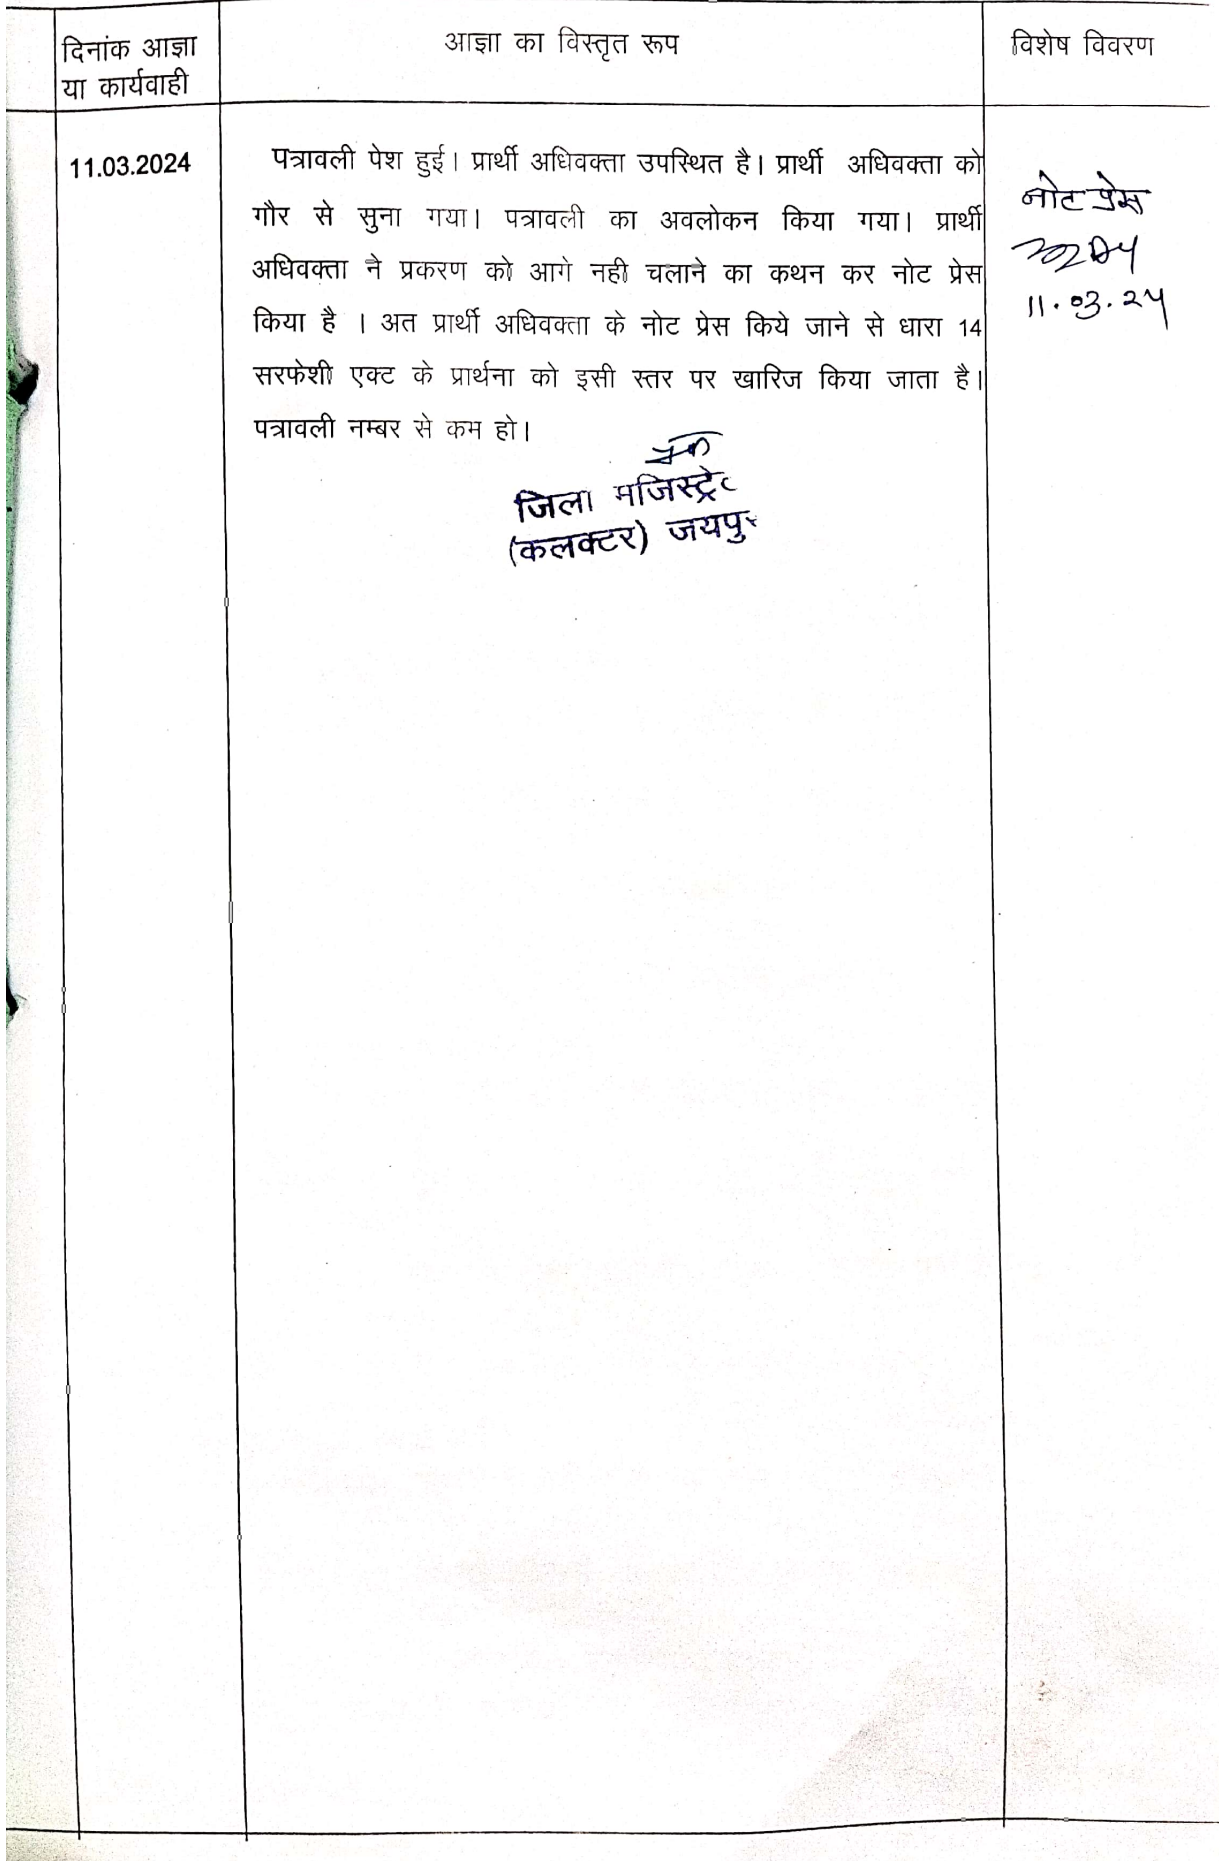 दिनांक आज्ञा
या कार्यवाही
आज्ञा का विस्तृत रूप
विशेष विवरण
11.03.2024
पत्रावली पेश हुई। प्रार्थी अधिवक्ता उपस्थित है। प्रार्थी अधिवक्ता को
गौर से सुना गया। पत्रावली का अवलोकन किया गया। प्रार्थी
अधिवक्ता ने प्रकरण को आगे नही चलाने का कथन कर नोट प्रेस
किया है । अत प्रार्थी अधिवक्ता के नोट प्रेस किये जाने से धारा 14
सरफेशी एक्ट के प्रार्थना को इसी स्तर पर खारिज किया जाता है।
पत्रावली नम्बर से कम हो।
जिला मजिस्ट्रेट
(कलक्टर) जयपुर
नोट प्रेस
11.03.24